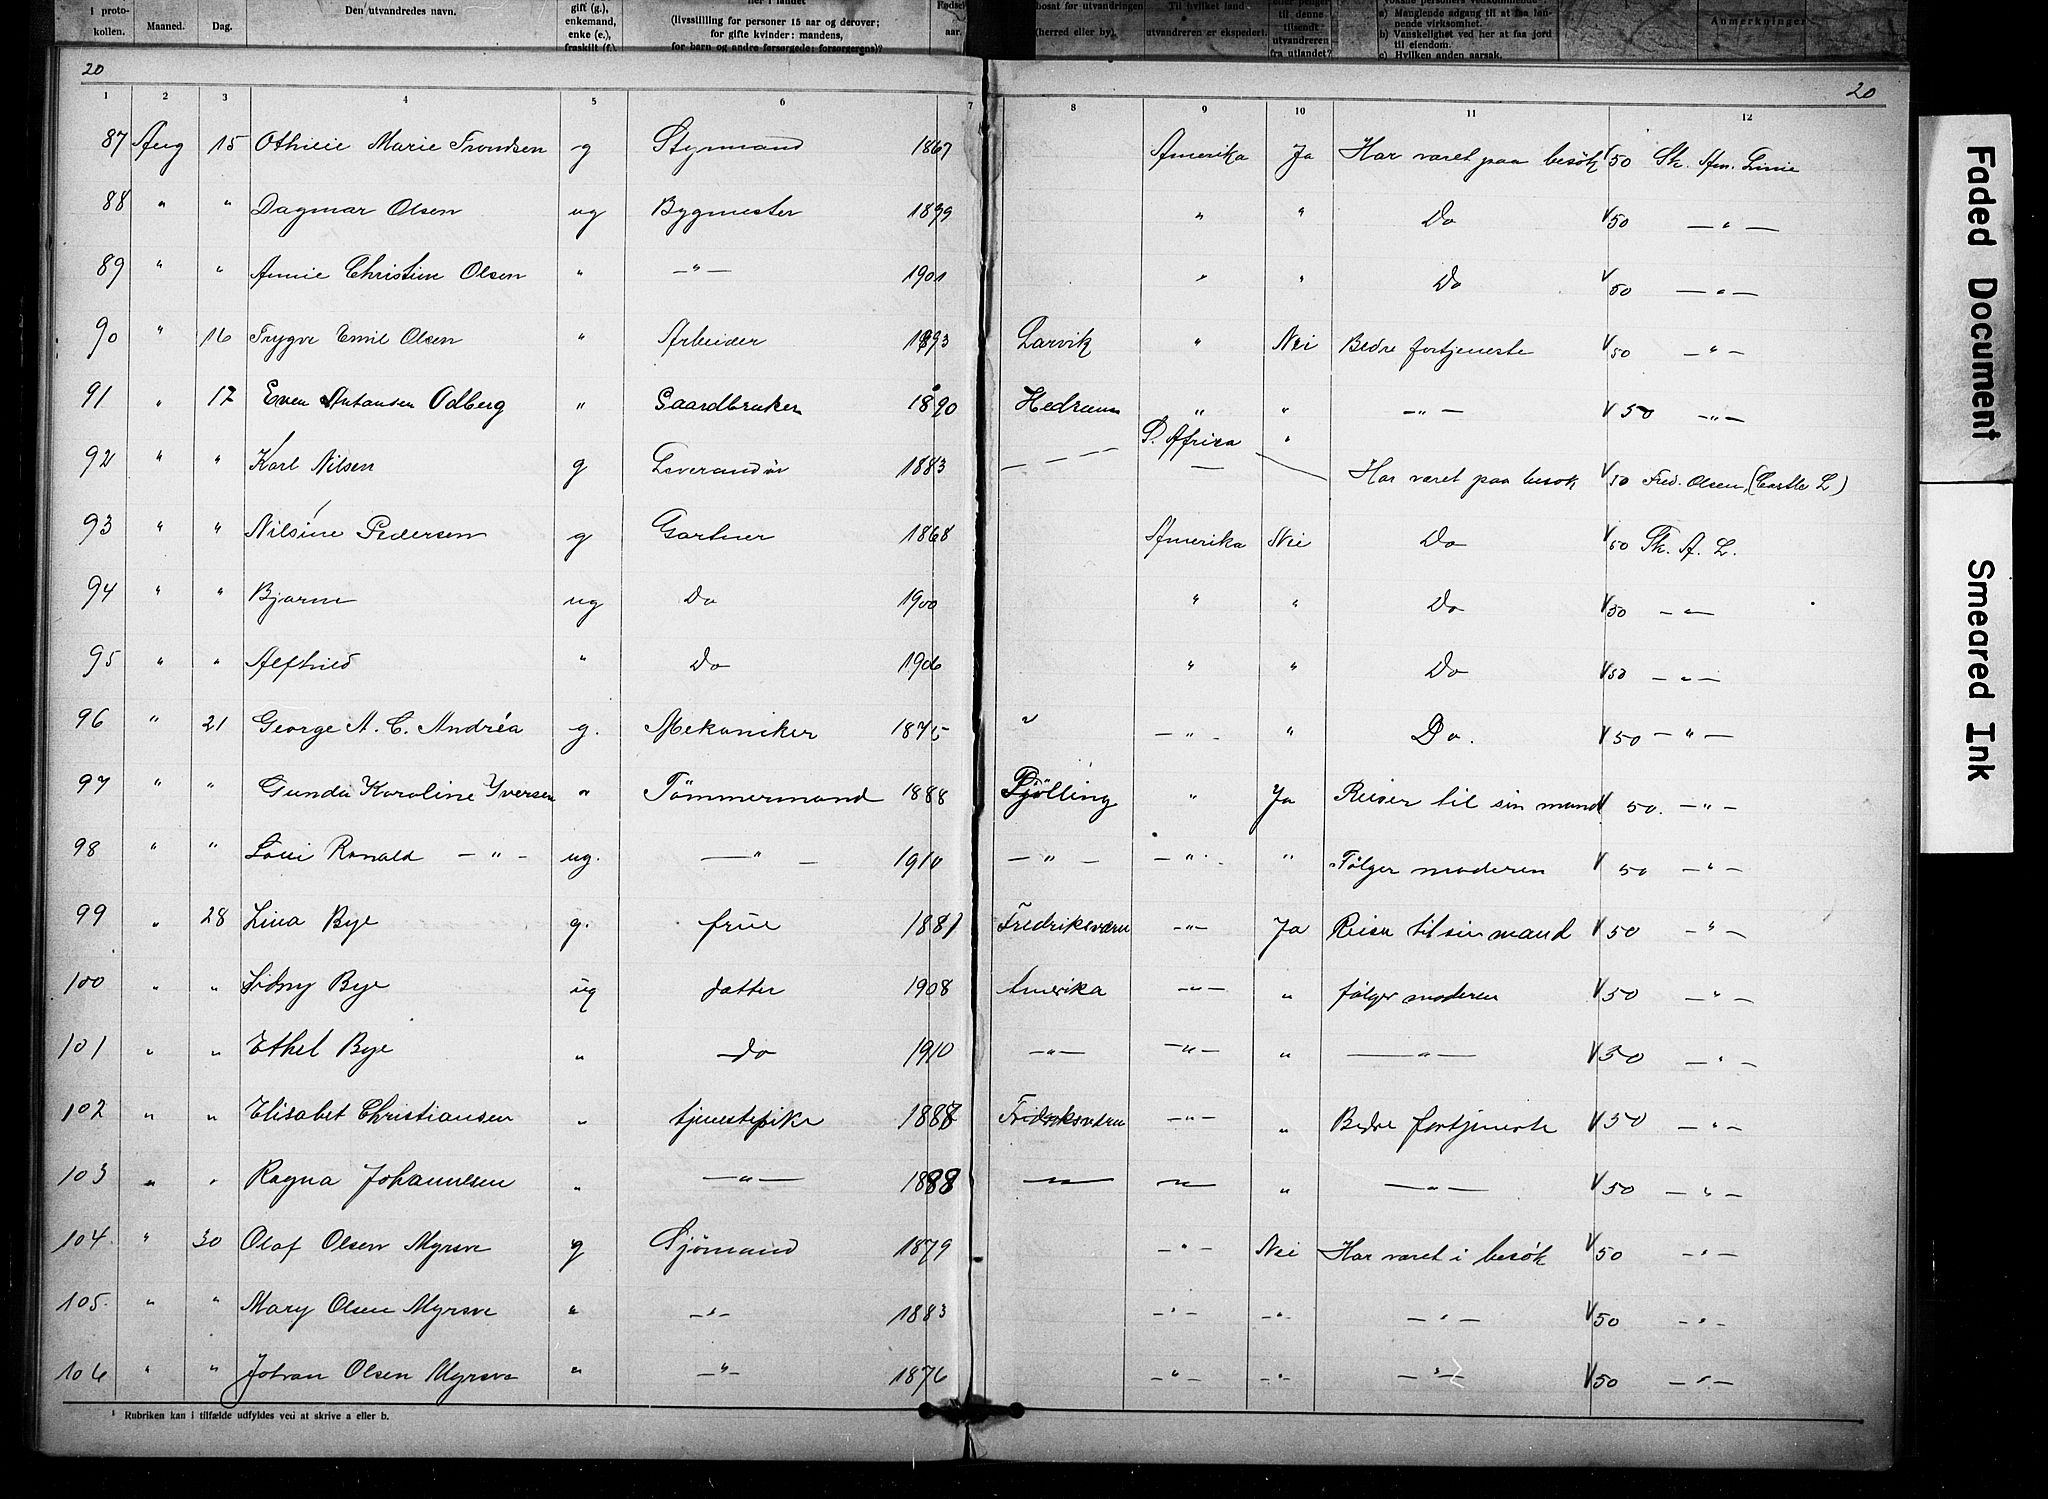 i proto-
kollen.
Maaned.
Dag.
Den utvandredes navn.
gift (g.),
enkemand,
enke (e.),
fraskilt (f.)
her i landet
(livsstilling for personer 15 aar og derover;
for gifte kvinder: mandens,
for barn og andre forsørgede: forsørgerens)?
Fødsels-
aar.
bosat før utvandringen
(herred eller by).
Til hvilket land
utvandreren er ekspedert.
eller penger
til denne
tilsendt
utvandreren
fra utlandet?
voksne personers vedkommende
a) Manglende adgang til at faa løn-
nende virksomhet.
b) Vanskelighet ved her at faa jord
til eiendom.
c) Hvilken anden aarsak.
Anmerkninger
20 20
1 2 3 4 5 6 7 8 9 10 11 12
87 Aug 15 Othilie Marie Trondsen g Styrmand 1867 Amerika Ja Har været paa besök √50 Sk. Am. Linie
88 " " Dagmar Olsen ug Bygmester 1899 " " Do √50 — " —
89 " " Annie Christine Olsen " — " — 1901 " " Do √50 — " —
90 " 16 Trygve Emil Olsen " Arbeider 1893 Larvik " Nei Bedre fortjeneste √50 — " —
91 " 17 Even Antonsen Odberg " Gaardbruker 1890 Hedrum " " — " — √50 — " —
92 " " Karl Nilsen g Leverandör 1883 — — — S. Africa " Har været paa besök √50 Fred. Olsen, (Castle L)
93 " " Nilsine Pedersen g Gartner 1868 Amerika Nei Do √50 Sk. A. L.
94 " " Bjarne ug Do 1900 " " Do √50 — " —
95 " " Alfhild " Do 1906 " " Do √50 — " —
96 " 21 George A. C. Andréa g. Mekaniker 1875 " — " - " Do. √50 — " —
97 " " Gunda Karoline Iversen " Tömmermand 1888 Tjölling " Ja Reiser til sin mand √50. — " —
98 " " Loui Ronald — " — ug. — " — 1910 — " — — " — " Fölger moderen √50 — " —
99 " 28 Lina Bye g. frue 1881 Fredriksværn — " — Ja Reiser til sin mand √50 — " —
100 " " Sidny Bye ug datter 1908 Amerika — " — " fölger moderen √50 — " —
101 " " Ethel Bye " do 1910 — " — — " — " — " — √50 — " —
102 " " Elisabet Christiansen " tjenestepike 1887 Fredriksværn — " — " Bedre fortjeneste √50 — " —
103 " " Ragna Johannesen " — " — 1888 — " — — " — " — " — √50 — " —
104. " 30 Olaf Olsen Myrsve g Sjömand 1879 — " — Nei Har været i besök √50 — " —
105. " " Mary Olsen Myrsve " — " — 1883 — " — — " — — " — √50 — " —
106 " " Johan Olsen Myrsve " — " — 1876 — " — — " — — " — √50 — " —
¹ Rubriken kan i tilfælde udfyldes ved at skrive a eller b.
Faded Document
Smeared Ink